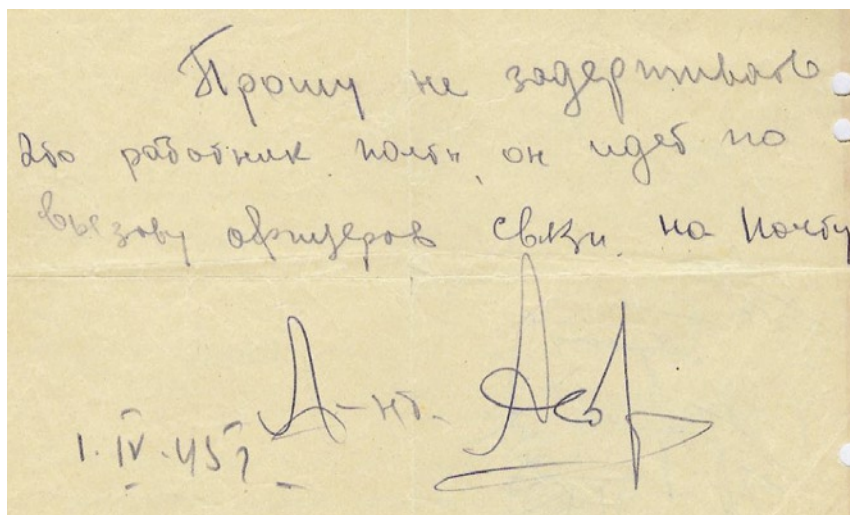 Прошу не задерживать
Это работник почты, он идет по
вызову офицеров связи на почту
1.IV.45г Л-нт.